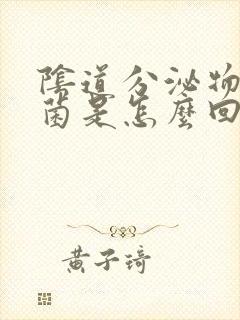 陰道分泌物
菌是怎麼回
黃子琦